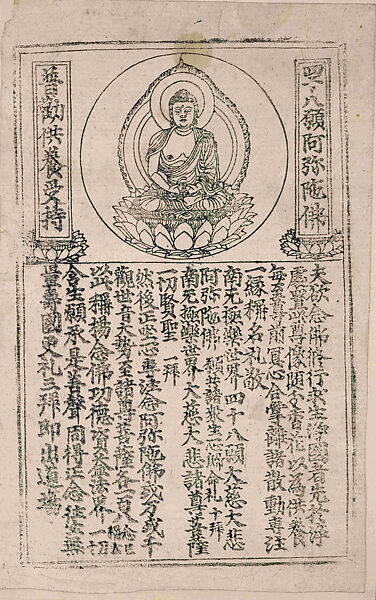 四十八願阿弥陀佛
普勸供養受持
夫欲念佛修行求生淨國者先於淨
處置此尊像隨分香花以為供養
每至尊前冥心合掌離諸散動專注
一緣稱名礼敬
南无極樂世界四十八願大慈大悲
阿弥陀佛 願共諸衆生一心歸命礼 十拜
南无極樂世界大慈大悲諸尊菩薩
一切賢聖 一拜
然後正坐一心專注念阿弥陀佛或万或千
觀世音大勢至諸尊菩薩各一百八
以此稱揚念佛功德資益法界一切
含生願承是善聲同得正念往生無
量壽國更礼三拜即出道場